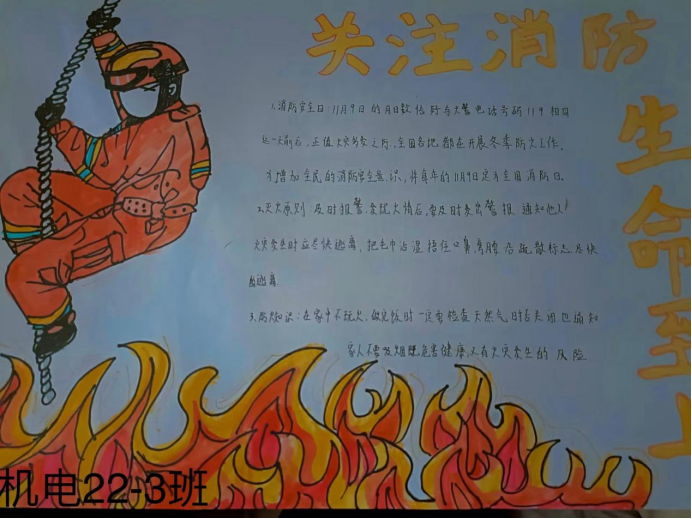 关注消防
生命至上
1.消防安全日:11月9日的月日数恰好与火警电话号码119相同
这一天前后,正值火灾多发之际,全国各地都在开展冬季防火工作。
为增加全民的消防安全意识,并将每年的11月9日定为全国消防日。
2.灭火原则 及时报警 发现火情后,要及时发出警报 通知他人
火灾发生时应尽快逃离,把毛巾沾湿捂住口鼻,弯腰 沿疏散标志尽快
逃离
3.防火知识:在家中不玩火,做完饭时一定要检查天然气是否关闭也通知
家人不要吸烟既危害健康又有火灾发生的危险
机电22-3班